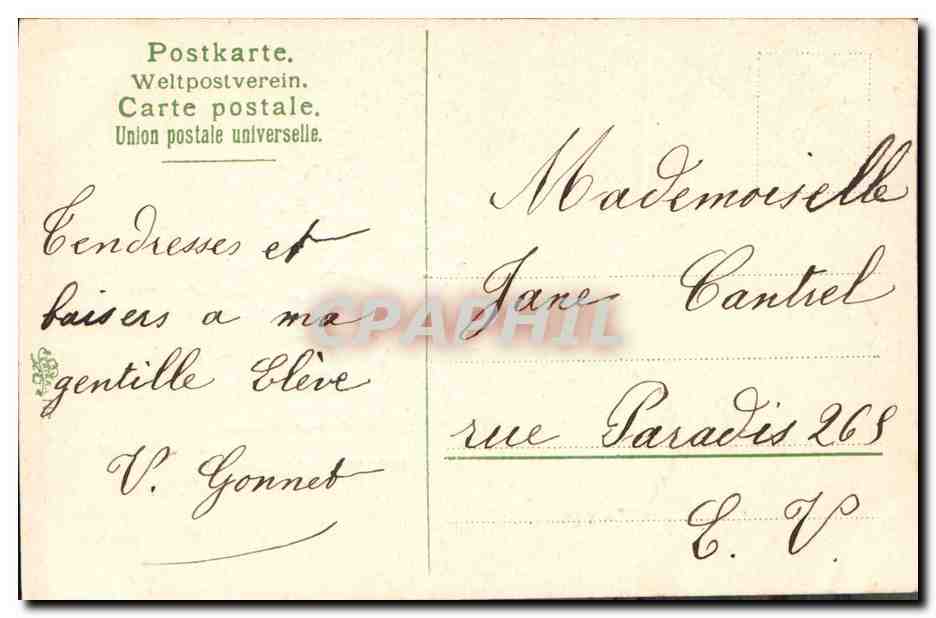 Postkarte.
Weltpostverein.
Carte postale.
Union postale universelle.
Tendresses et
baisers a ma
gentille Elève
V. Gonnet
Mademoiselle
Jane Cantrel
rue Paradis 268
E. V.
CPAPHIL